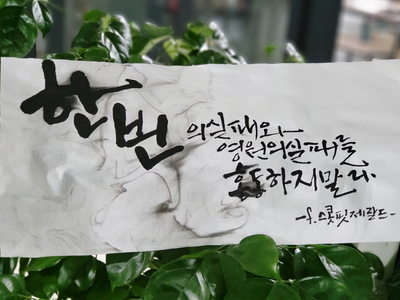 한번
의실패와
영원의실패를
혼동하지말라.
-F.스콧핏제랄드-